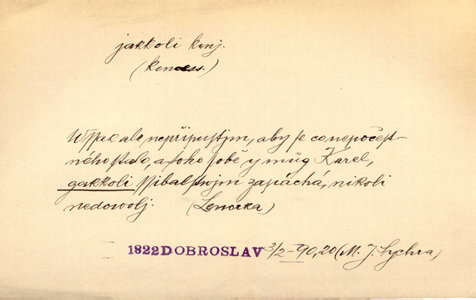 jakkoli konj.
(koncess.)
Wssak ale nepřipustjm, aby se co nepočest-
ného stalo, a toho sobě y můg Karel,
gakkoli šibalstwjm zapáchá, nikoli
nedowolj. (Lenorka)
1822 DOBROSLAV 3/2 - 90, 20 (M. J. Sychra)